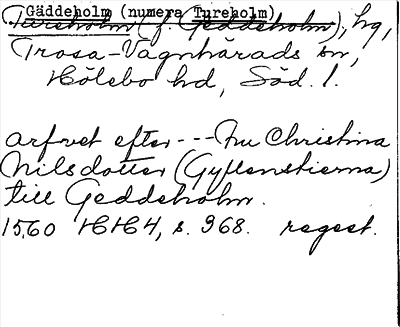 Gäddeholm (numera Tureholm)
Tureholm (f. Geddeholm), hg,
Trosa-Vagnhärads sn,
Hölebo hd, Söd. l.
arfvet efter --- fru Christina
Nilsdotter (Gyllenstierna)
till Geddeholm.
1560 HH4, s. 368. regest.